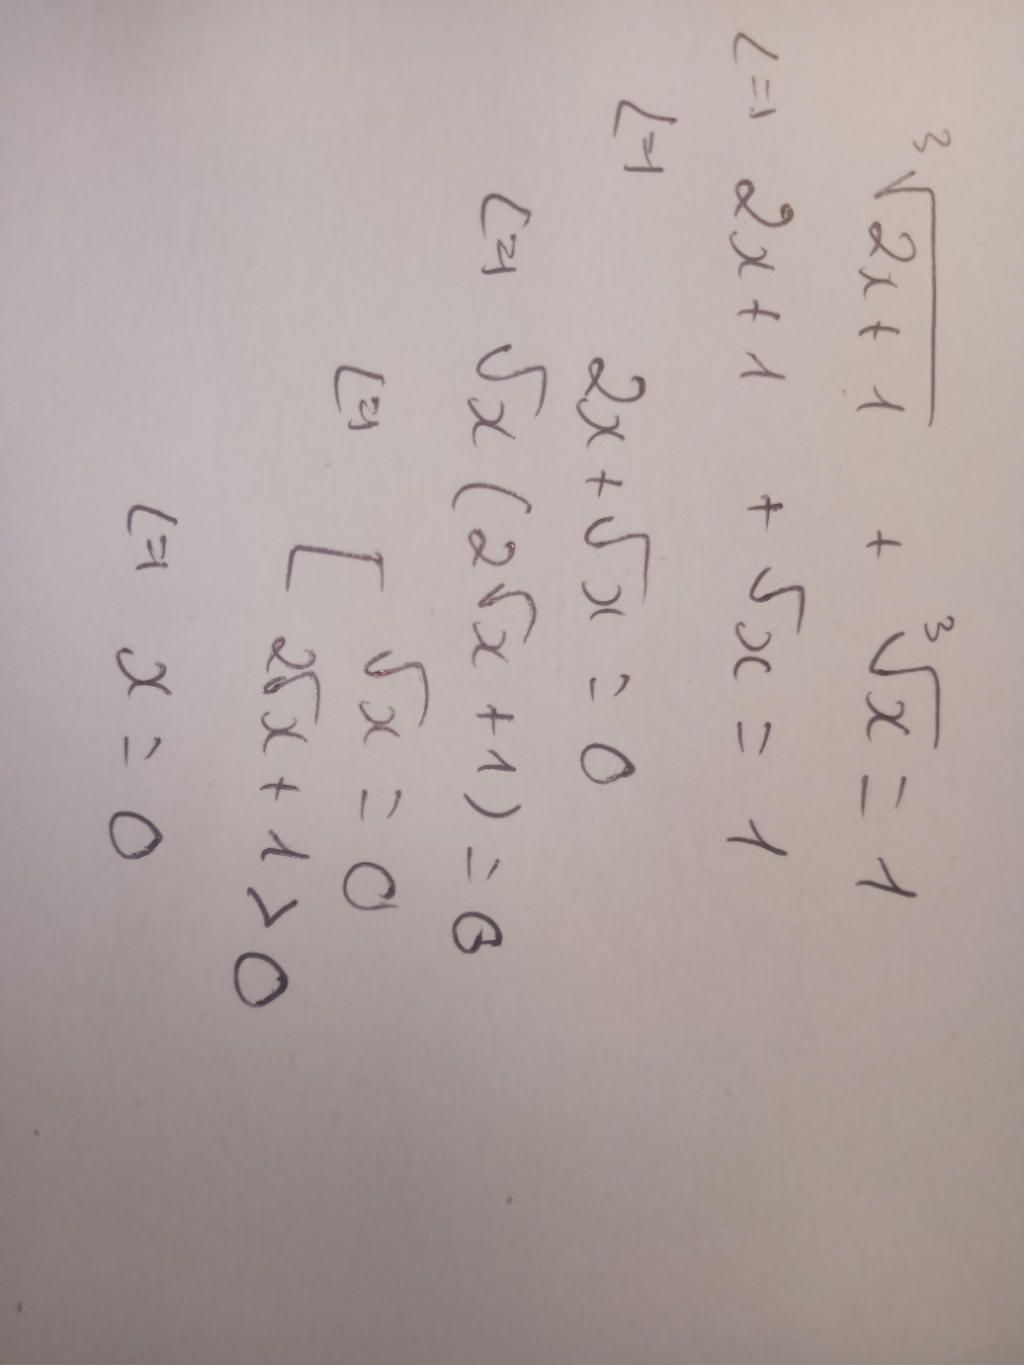 ∛(2x+1) + ∛x = 1
<=> 2x+1 + √x = 1
<=> 2x + √x = 0
<=> √x (2√x + 1) = 0
<=> [ √x = 0
2√x + 1 > 0
<=> x = 0